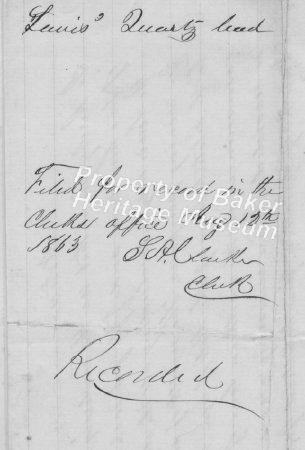 Lewis' Quartz lead
Filed for record in the
Clerks office Aug 12th
1863 S. A. Clarke
Clerk
Recorded
Property of Baker
Heritage Museum